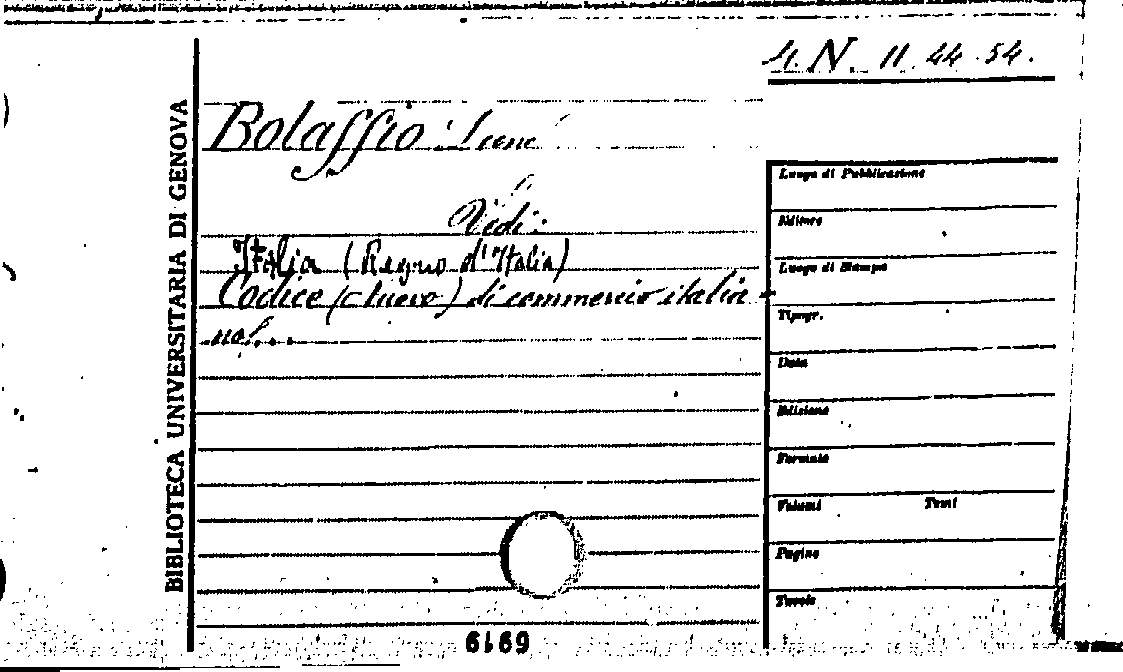 4. N. 11. 44. 54.
BIBLIOTECA UNIVERSITARIA DI GENOVA
Bolaffio Leone
Vedi:
Italia (Regno d'Italia)
Codice (Nuovo) di commercio italia-
no...
Luogo di Pubblicazione
Editore
Luogo di Stampa
Tipogr.
Data
Edizione
Formato
Volumi Tomi
Pagine
Tavole
6919